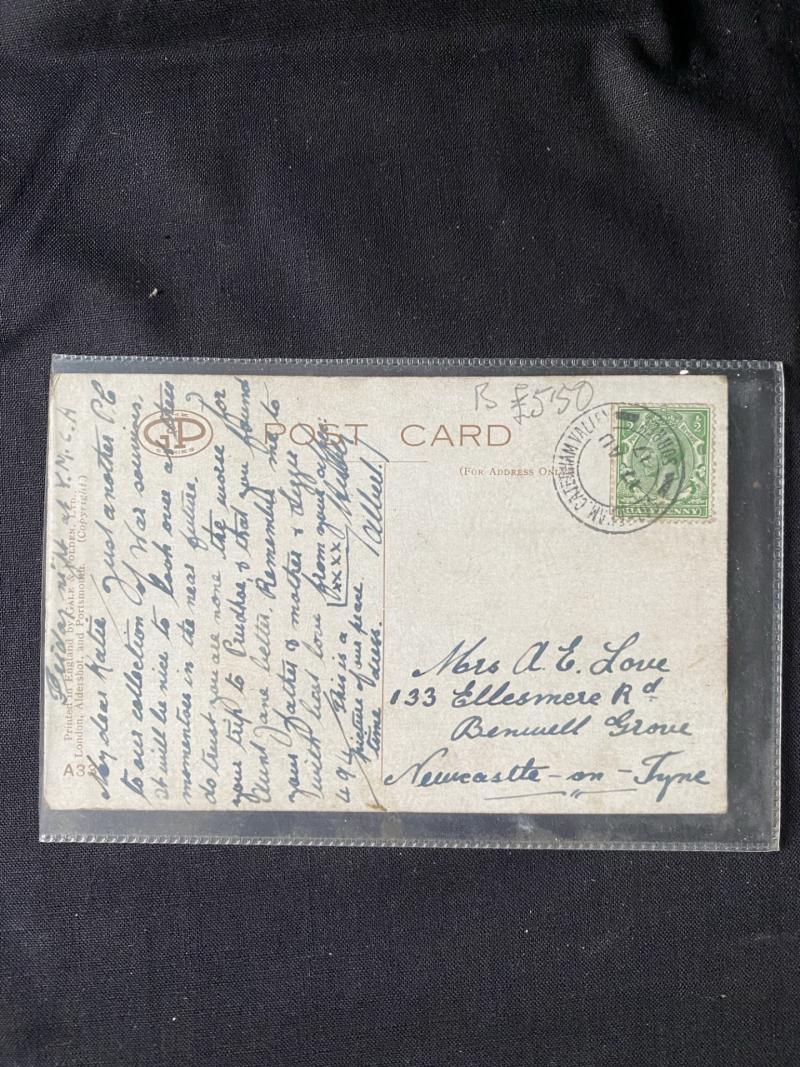 POST CARD
(FOR ADDRESS ONLY)
B £5.50
HALFPENNY
CATERHAM VALLEY
Mrs A. E. Love
133 Ellesmere Rd
Benwell Grove
Newcastle-on-Tyne
A38
Printed in England by GALE & POLDEN, LTD.,
London, Aldershot, and Portsmouth. (Copyright.)
Friday night at Y.M.C.A
My dear Katie Just another P.C
to our collection of War souvenirs.
it will be nice to look one as
momentoes in the near future I
do trust you are none the worse for
your trip to Prudhoe & that you found
Aunt Jane better. Remember me to
your father & mother &
with best love from your aff:
xxxx
This is a
picture of our peace
time dress.